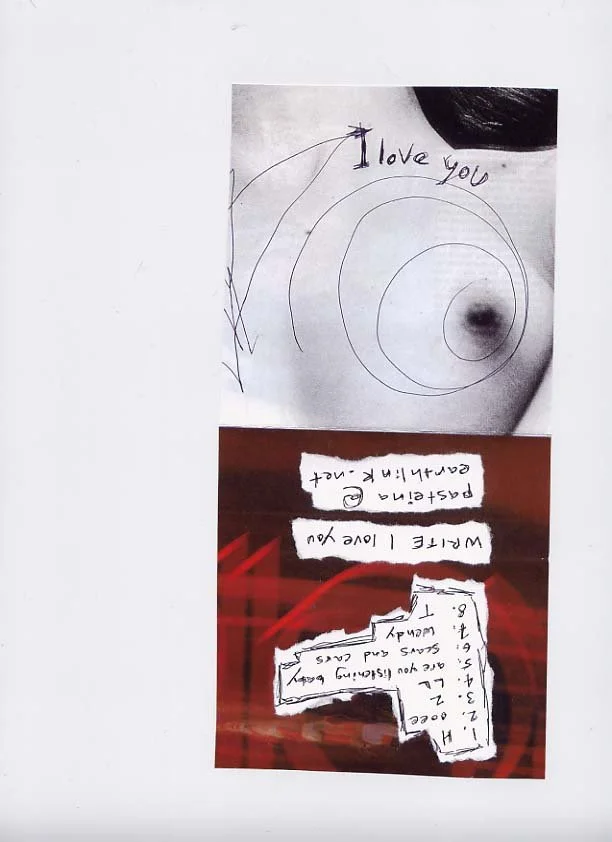 I love you
1. H
2. ooee
3. Z
4. LL
5. are you listening baby
6. scars and cars
7. Wendy
8. T
WRITE I love you
pasteina @
earthlink.net